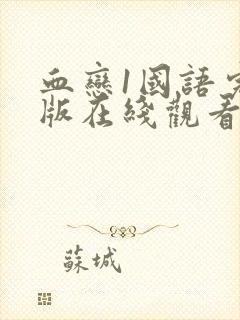 血戀1國語完
版在綫觀看
蘇城